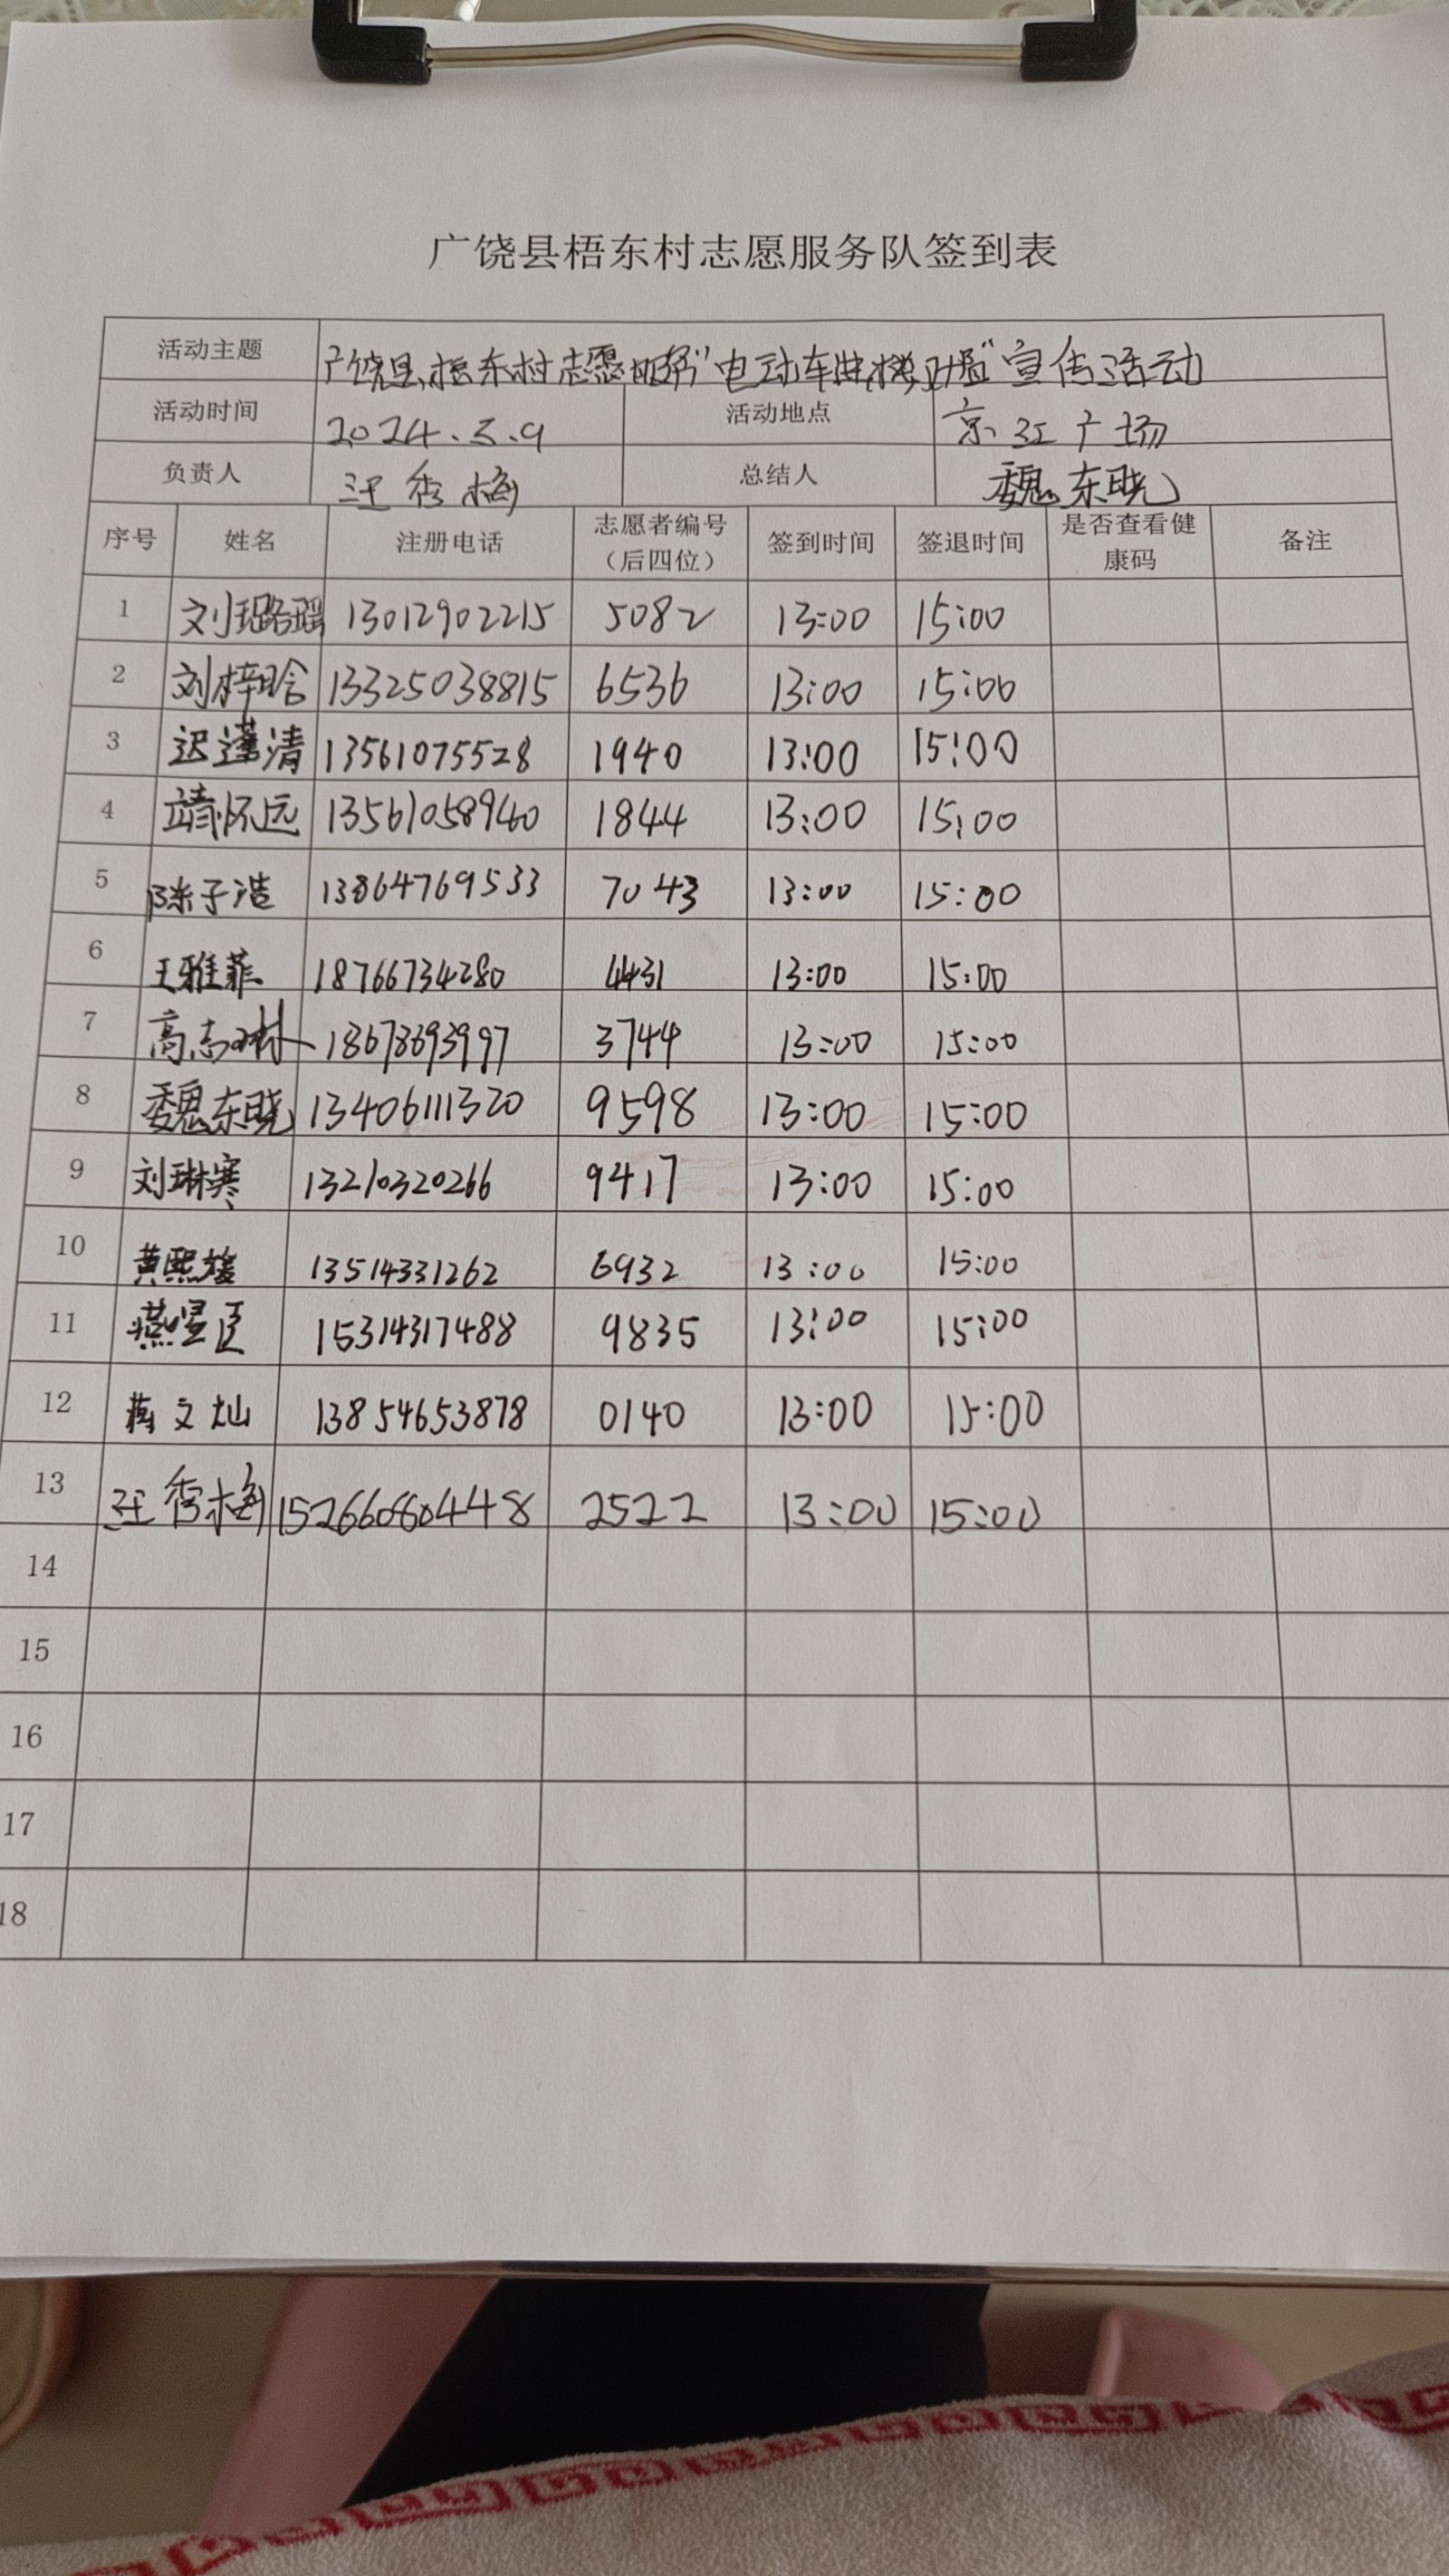 广饶县梧东村志愿服务队签到表
活动主题 广饶县梧东村志愿服务"电动车进楼入室"宣传活动
活动时间 2024.3.9 活动地点 京江广场
负责人 汪秀梅 总结人 魏东晓
序号 姓名 注册电话 志愿者编号（后四位） 签到时间 签退时间 是否查看健康码 备注
1 刘璐瑶 13012902215 5082 13:00 15:00
2 刘梓晗 13325038815 6536 13:00 15:00
3 迟谨清 13561075528 1940 13:00 15:00
4 靖怀远 13561058940 1844 13:00 15:00
5 陈子浩 13864769533 7043 13:00 15:00
6 王雅菲 18766734280 4431 13:00 15:00
7 高志琳 18678693997 3744 13:00 15:00
8 魏东晓 13406111320 9598 13:00 15:00
9 刘琳寒 13210320266 9417 13:00 15:00
10 黄熙媛 13514331262 6932 13:00 15:00
11 15314317488 9835 13:00 15:00
12 文灿 13854653878 0140 13:00 15:00
13 汪秀梅 15266060448 2522 13:00 15:00
14
15
16
17
18